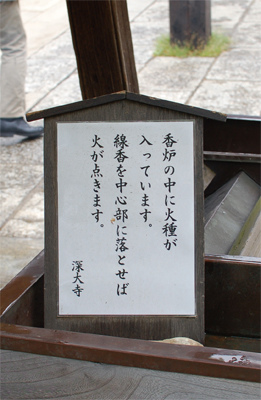 香炉の中に火種が
入っています。
線香を中心部に落とせば
火が点きます。
深大寺